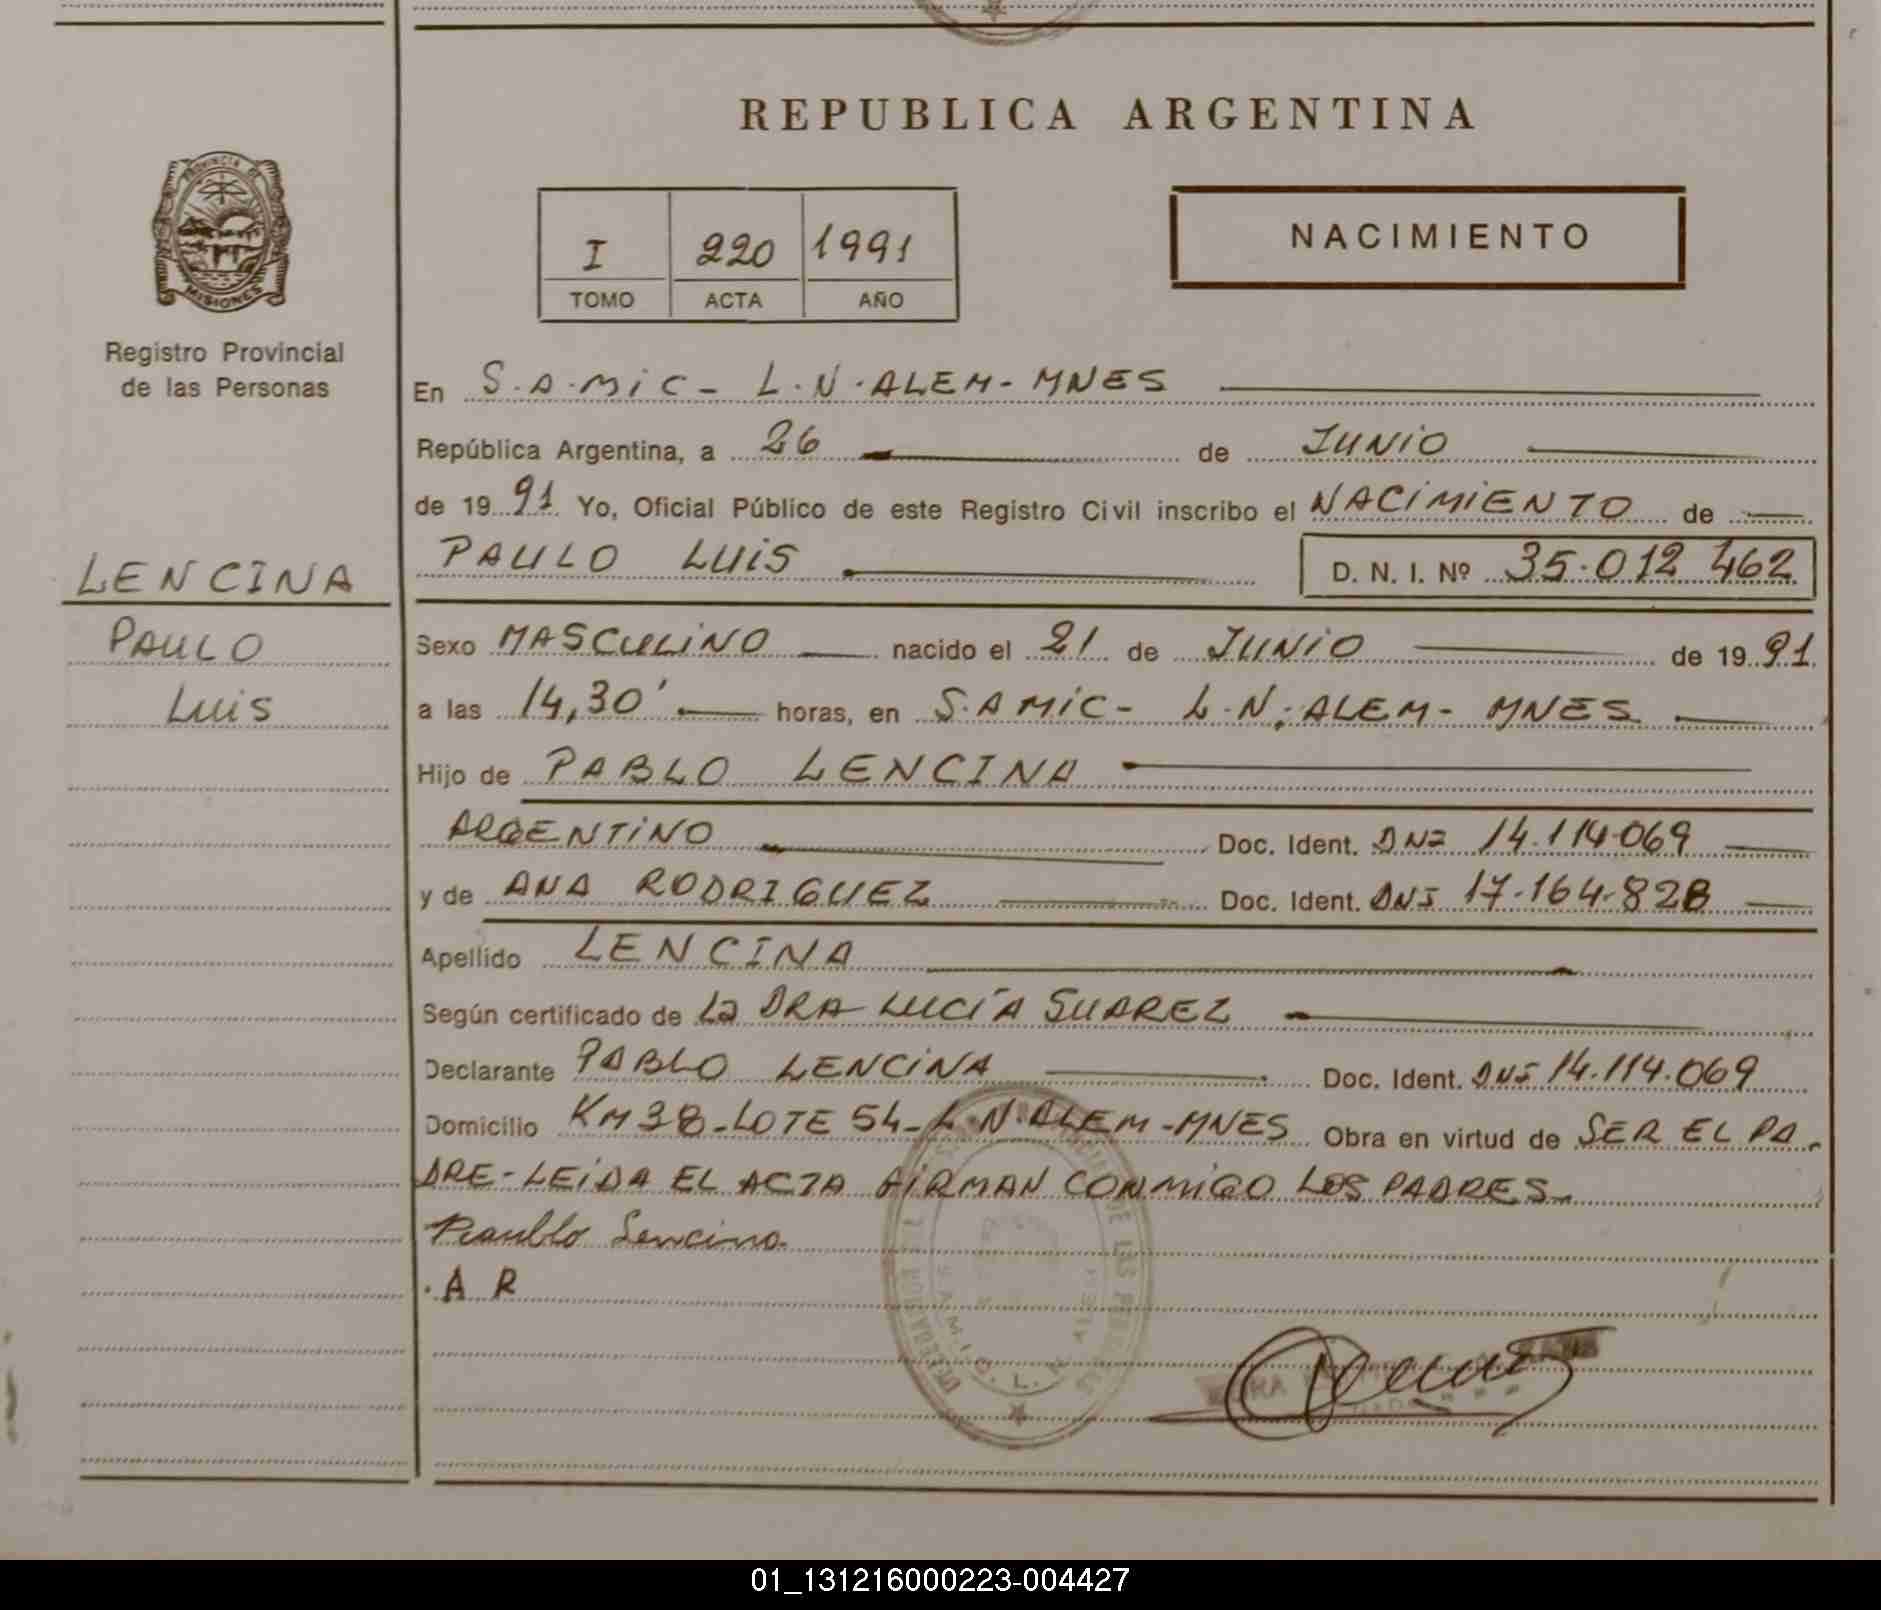 REPUBLICA ARGENTINA
PROVINCIA DE
MISIONES
Registro Provincial
de las Personas
I 220 1991
TOMO ACTA AÑO
NACIMIENTO
En S.A.MiC- L.N.ALEM-MNES
República Argentina, a 26 de JUNiO
de 1991 Yo, Oficial Público de este Registro Civil inscribo el NACiMiENTO de
LENCINA
PAULO LUiS D. N. I. Nº 35.012 462
PAULO
Sexo MASCULiNO nacido el 21 de JUNiO de 1991
Luis
a las 14,30' horas, en S.AMiC- L.N.ALEM- MNES
Hijo de PABLO LENCINA
ARGENTiNO Doc. Ident. DNI 14.114.069
y de ANA RODRIGUEZ Doc. Ident. DNI 17.164.828
Apellido LENCINA
Según certificado de La DRA LUCíA SUAREZ
Declarante PABLO LENCiNA Doc. Ident. DNI 14.114.069
Domicilio KM38-LOTE 54-L.N.ALEM-MNES Obra en virtud de SER EL PA-
DRE-LEiDA EL ACTA FiRMAN CONMiGO LOS PADRES-
Paublo Lencina
.A R
S.A.M.I.C. L. N. ALEM
01_131216000223-004427